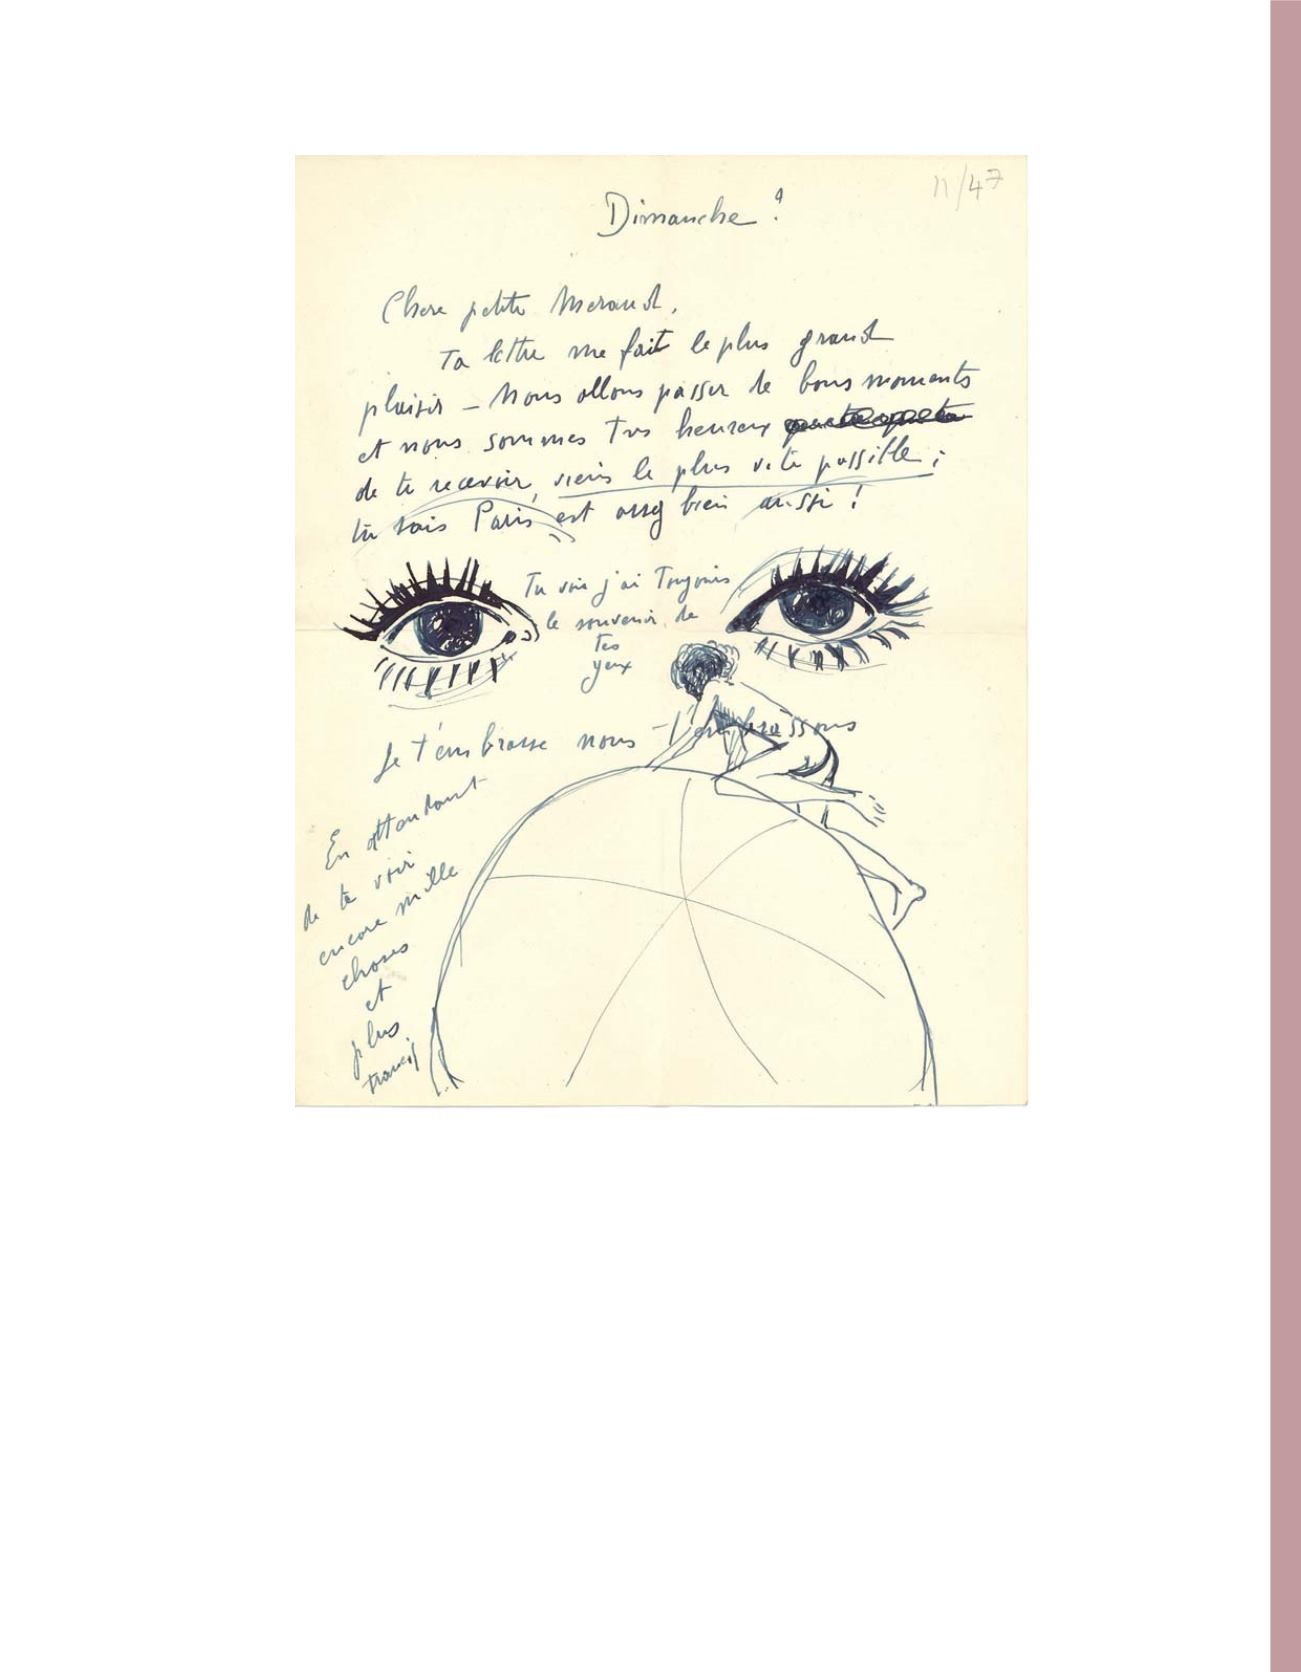 11/47
Dimanche ?
Chere petite Meraud,
Ta lettre me fait le plus grand
plaisir – Nous allons passer de bons moments
et nous sommes tres heureux
de te recevoir, viens le plus vite possible ;
tu sais Paris est assez bien aussi !
Tu vois j'ai Toujours
le souvenir de
tes
yeux
Je t'embrasse nous t'embrassons
En attendant
de te voir
encore mille
choses
et
plus